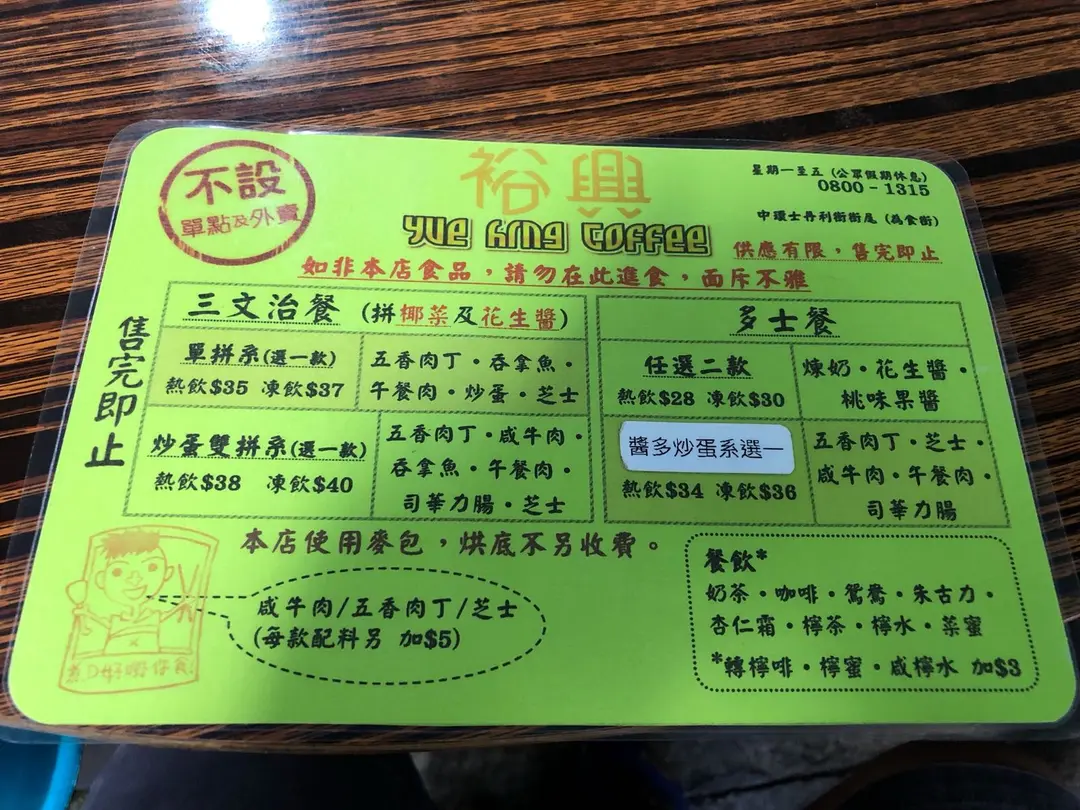 不設
單點及外賣
裕興
Yue hing Coffee
星期一至五 (公眾假期休息)
0800 - 1315
中環士丹利街街尾 (為食街)
供應有限，售完即止
如非本店食品，請勿在此進食，面斥不雅
售完即止
三文治餐 (拼椰菜及花生醬)
單拼系(選一款)
熱飲$35 凍飲$37
五香肉丁・吞拿魚・
午餐肉・炒蛋・芝士
炒蛋雙拼系(選一款)
熱飲$38 凍飲$40
五香肉丁・咸牛肉・
吞拿魚・午餐肉・
司華力腸・芝士
多士餐
任選二款
熱飲$28 凍飲$30
煉奶・花生醬・
桃味果醬
醬多炒蛋系選一
熱飲$34 凍飲$36
五香肉丁・芝士・
咸牛肉・午餐肉・
司華力腸
本店使用麥包，烘底不另收費。
咸牛肉/五香肉丁/芝士
(每款配料另 加$5)
煮D好嘢你食!
餐飲*
奶茶・咖啡・鴛鴦・朱古力・
杏仁霜・檸茶・檸水・菜蜜
*轉檸啡・檸蜜・咸檸水 加$3